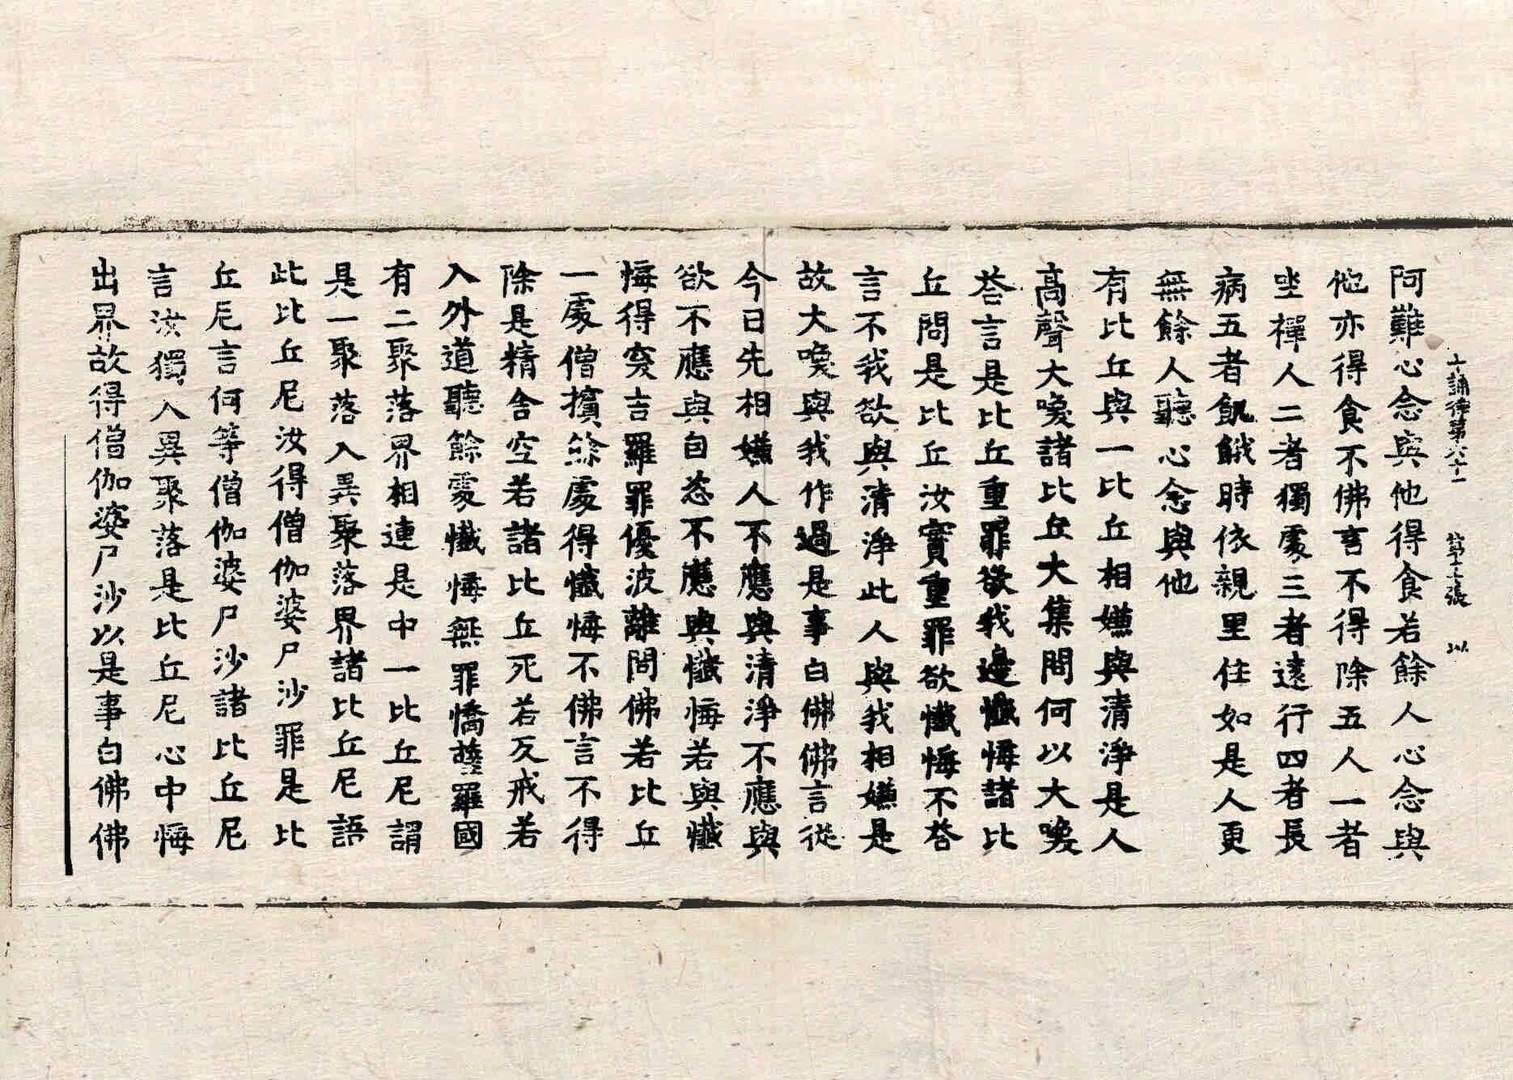 十誦律第六十一 第十二張 以
阿難心念與他得食若餘人心念與
他亦得食不佛言不得除五人一者
坐禪人二者獨處三者遠行四者長
病五者飢餓時依親里住如是人更
無餘人聽心念與他
有比丘與一比丘相嫌與清淨是人
高聲大喚諸比丘大集問何以大喚
荅言是比丘重罪欲我邊懺悔諸比
丘問是比丘汝實重罪欲懺悔不荅
言不我欲與清淨此人與我相嫌是
故大喚與我作過是事白佛佛言從
今日先相嫌人不應與清淨不應與
欲不應與自恣不應與懺悔若與懺
悔得突吉羅罪優波離問佛若比丘
一處僧擯餘處得懺悔不佛言不得
除是精舍空若諸比丘死若反戒若
入外道聽餘處懺悔無罪憍薩羅國
有二聚落界相連是中一比丘尼謂
是一聚落入異聚落界諸比丘尼語
此比丘尼汝得僧伽婆尸沙罪是比
丘尼言何等僧伽婆尸沙諸比丘尼
言汝獨入異聚落是比丘尼心中悔
出界故得僧伽婆尸沙以是事白佛佛